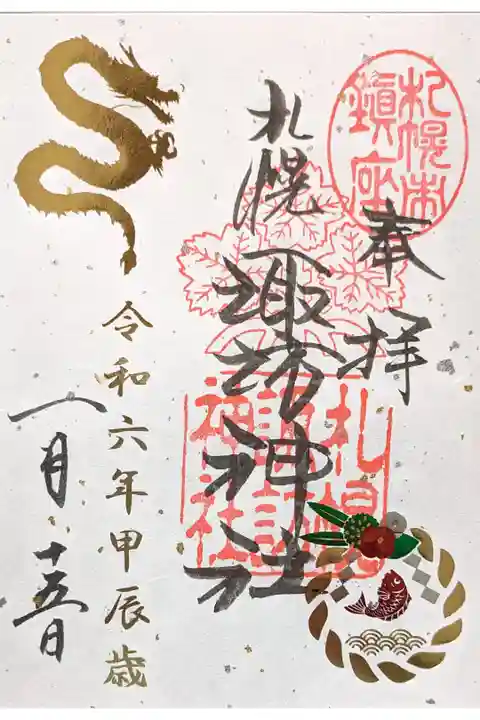 奉拝
札幌市
鎮座
札幌諏訪神社
札幌
諏訪
神社
令和六年甲辰歳
一月十五日